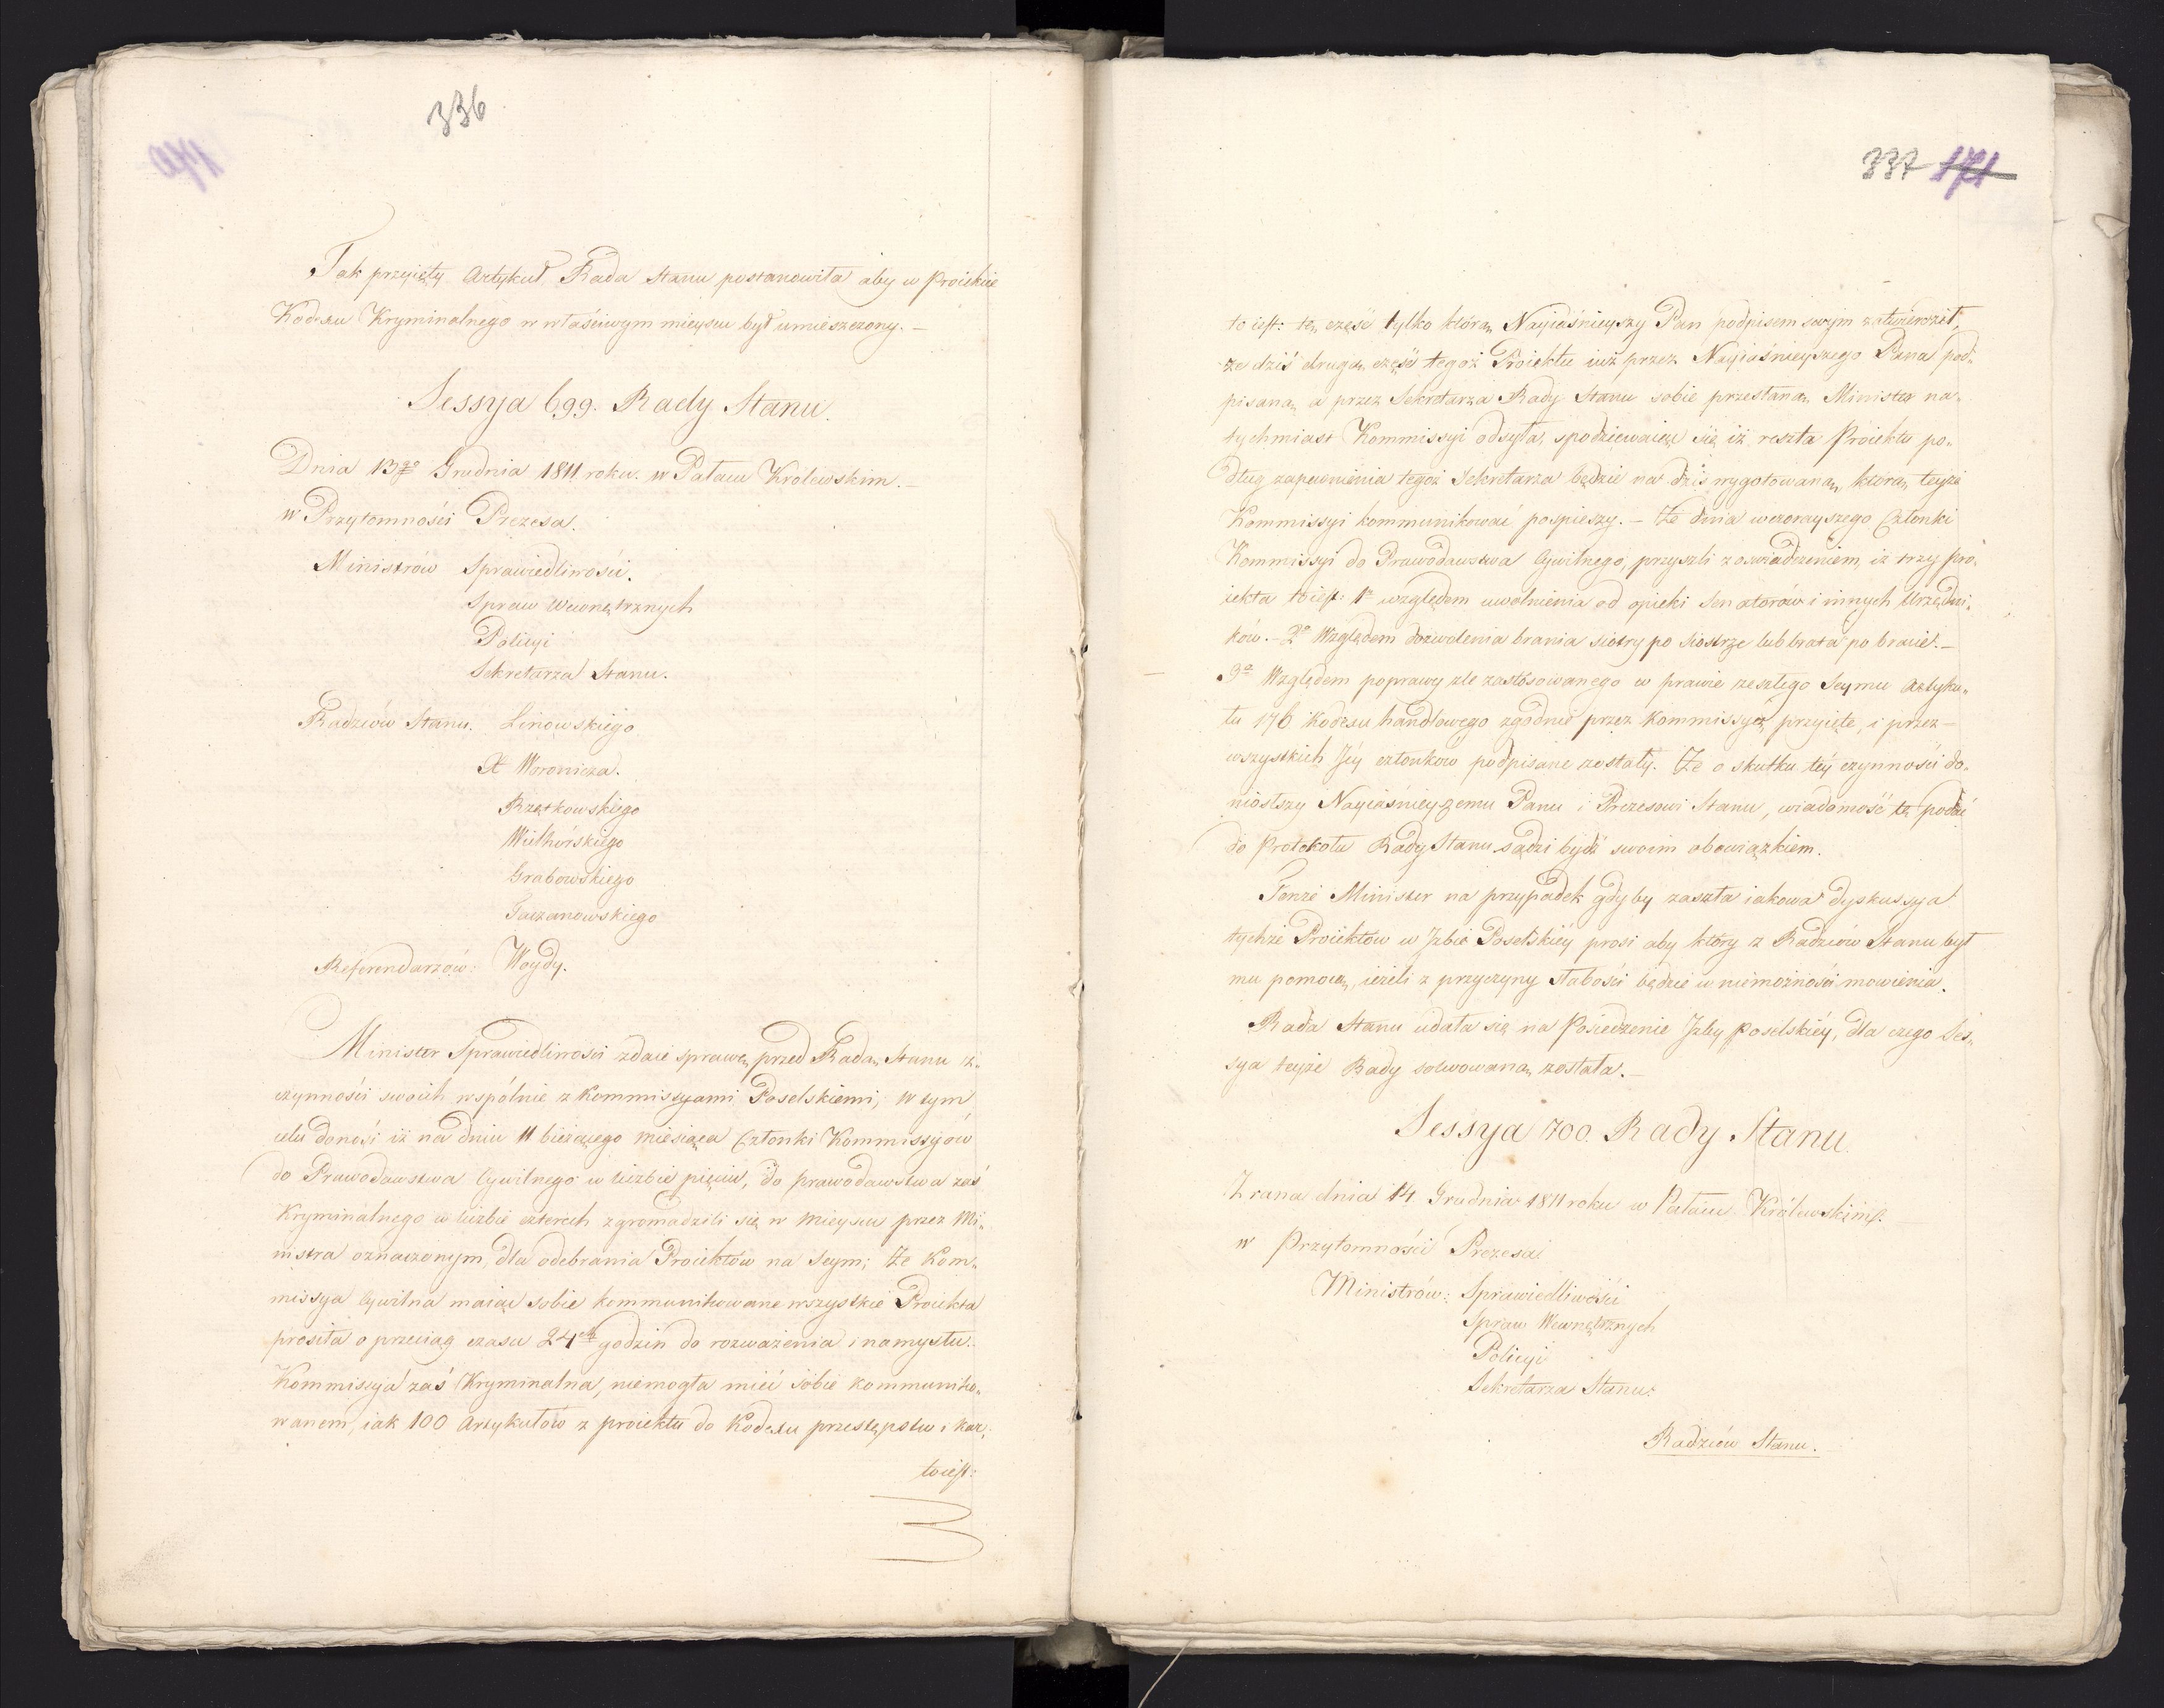 336
Tak przyięty Artykuł Rada Stanu postanowiła aby w Proiekcie
Kodexu Kryminalnego w właściwym mieyscu był umieszczony. –
Sessya 699. Rady Stanu.
Dnia 13go Grudnia 1811 roku. w Pałacu Królewskim. –
w Przytomności Prezesa.
Ministrów Sprawiedliwości.
Spraw Wewnętrznych
Policyi
Sekretarza Stanu.
Radzców Stanu. Linowskiego
X Woronicza.
Rzętkowskiego
Wielhórskiego
Grabowskiego
Taczanowskiego
Referendarzów: Woydy.
Minister Sprawiedliwości zdaie sprawę przed Radą Stanu z
czynności swoich wspólnie z Kommissyami Poselskiemi; w tym
celu donosi iż na dniu 11 bieżącego miesiąca Członki Kommissyów
do Prawodawstwa Cywilnego w liczbie pięciu, do prawodawstwa zaś
Kryminalnego w liczbie czterech zgromadzili się w mieyscu przez Mi„
nistra oznaczonym, dla odebrania Proiektów na Seym; że Kom„
missya Cywilna maiąc sobie kommunikowane wszystkie Proiekta
prosiła o przeciąg czasu 24ch godzin do rozważenia i namysłu.
Kommissya zaś Kryminalna, niemogła mieć sobie kommuniko„
wanem, iak 100 Artykułów z proiektu do Kodexu przestępstw i kar,
toiest:
337 171
to iest: tę część tylko którą Nayiaśnieyszy Pan podpisem swym zatwierdził,
że dziś drugą część tegoż Proiektu iuż przez Nayiaśnieyszego Pana pod„
pisaną a przez Sekretarza Rady Stanu sobie przesłaną Minister na„
tychmiast Kommissyi odsyła, spodziewaiąc się iż reszta Proiektu po„
dług zapewnienia tegoż Sekretarza będzie na dziś wygotowaną, którą teyże
Kommissyi kommunikować pospieszy. – Że dnia wczorayszego Członki
Kommissyi do Prawodawstwa Cywilnego, przyszli z oświadczeniem, iż trzy Pro„
iekta toiest: 1o względem uwolnienia od opieki Senatorów i innych Urzędni„
ków. – 2o Względem dozwolenia brania siostry po siostrze lub brata po bracie. –
3o Względem poprawy źle zastósowanego w prawie zeszłego Seymu Artyku„
łu 176 Kodexu handlowego zgodnie przez Kommissyą przyięte, i przez –
wszystkich Jéy członków podpisane zostały. Że o skutku téy czynności do„
niosłszy Nayiaśnieyszemu Panu i Prezesowi Stanu, wiadomość tę podać
do Protokołu Rady Stanu sądzi bydź swoim obowiązkiem.
Tenże Minister na przypadek gdyby zaszła iakowa dyskussya
tychże Proiektów w Izbie Poselskiéy prosi aby który z Radzców Stanu był
mu pomocą, ieżeli z przyczyny słabości będzie w niemożności mowienia.
Rada Stanu udała się na Posiedzenie Izby Poselskiéy, dla czego Ses„
sya teyże Rady solwowaną została. –
Sessya 700. Rady Stanu
Z rana dnia 14 Grudnia 1811 roku w Pałacu Królewskim.
w Przytomności Prezesa
Ministrów: Sprawiedliwości
Spraw Wewnętrznych
Policyi
Sekretarza Stanu:
Radzców Stanu.